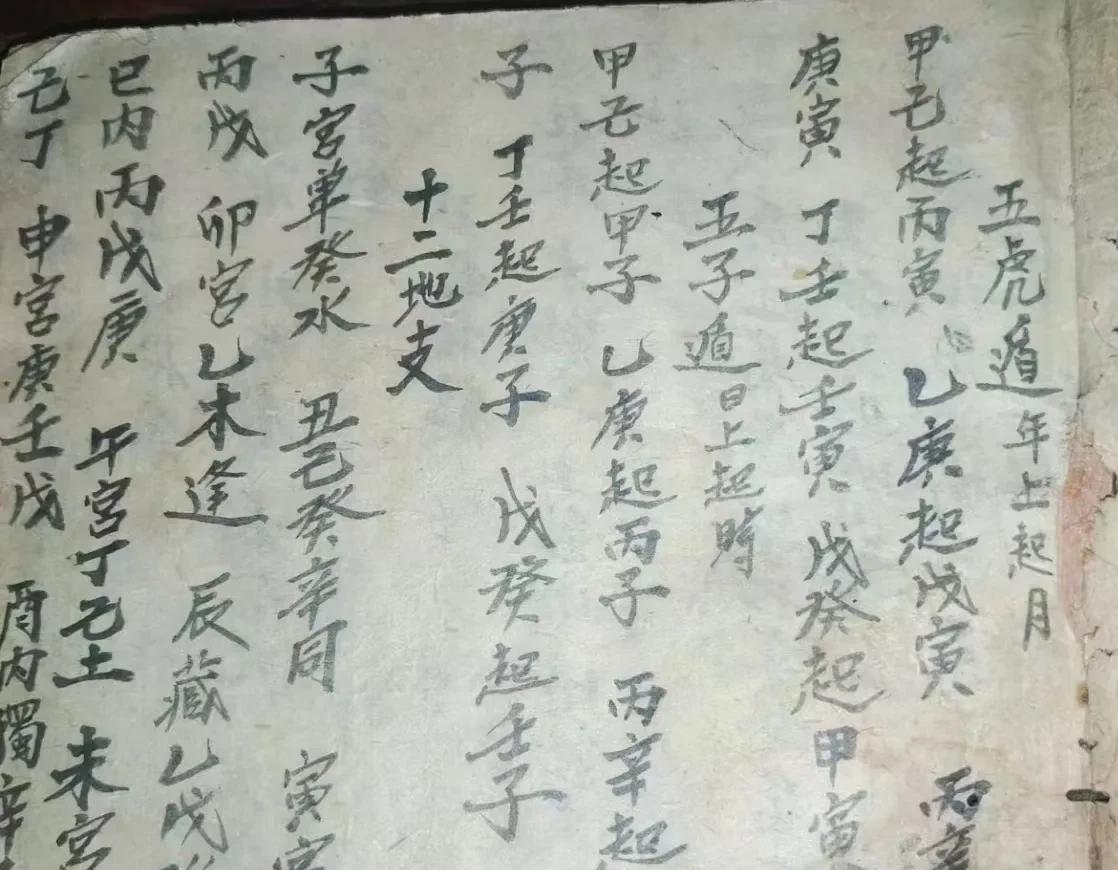 五虎遁 年上起月
甲己起丙寅 乙庚起戊寅 丙辛
庚寅 丁壬起壬寅 戊癸起甲寅
五子遁 日上起時
甲己起甲子 乙庚起丙子 丙辛起
子 丁壬起庚子 戊癸起壬子
十二地支
子宮单癸水 丑己癸辛同 寅宮
丙戊 卯宮乙木逢 辰藏乙戊
巳内丙戊庚 午宮丁己土 未宮
己丁 申宮庚壬戊 酉内獨辛